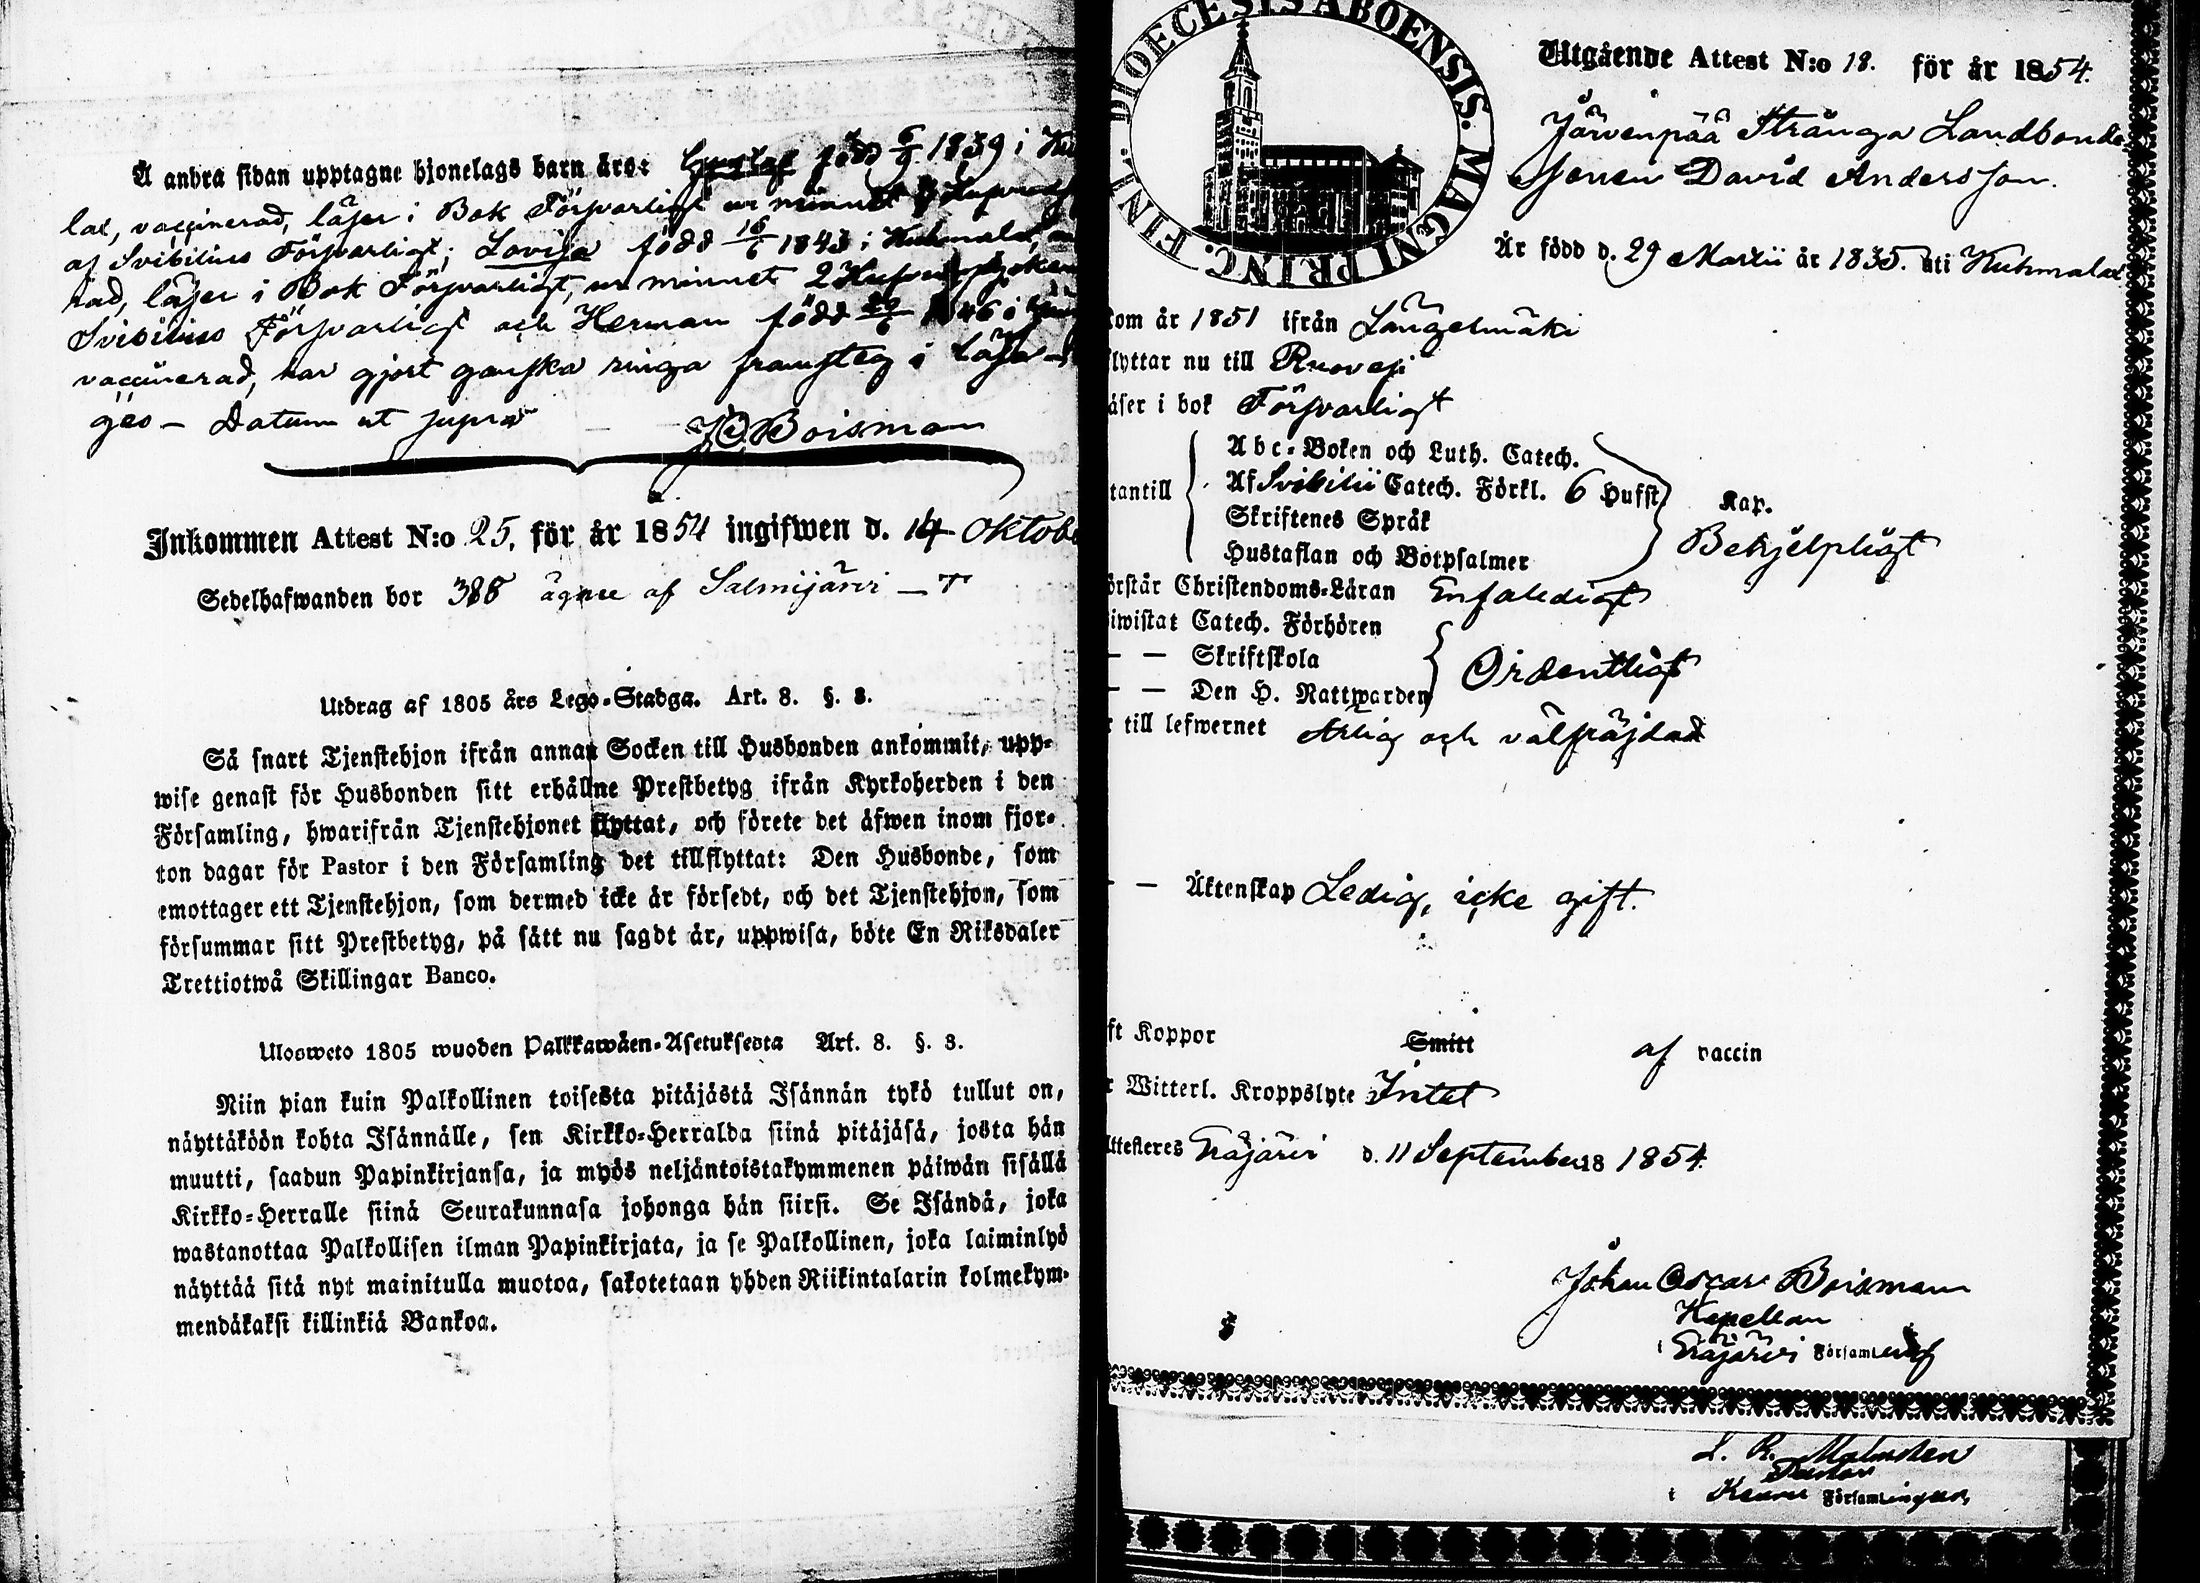 Å andra sidan upptagne hjonelags barn äro: Gustaf född 6/9 1839 i
lax, vaccinerad, läser i Bok Försvarligt ur minnet
af Svibilius Försvarligt; Lovisa född 16/6 1843 i Kuhmalax,
rad, läser i Bok Försvarligt, ur minnet 2
Svibilius Försvarligt och Herman född 1846 i
vaccinerad, har gjort ganska ringa framsteg i
Datum ut supra
J O Boisman
Inkommen Attest N:o 25. för år 1854 ingifwen d. 14 Oktobe
Sedelhafwanden bor ägare af Salmijärvi
Utdrag af 1805 års Lego-Stadga. Art. 8. §. 8.
Så snart Tjenstehjon ifrån annan Socken till Husbonden ankommit, upp-
wise genast för Husbonden sitt erhållne Prestbetyg ifrån Kyrkoherden i den
Församling, hwarifrån Tjenstehjonet flyttat, och förete det äfwen inom fjor-
ton dagar för Pastor i den Församling det tillflyttat: Den Husbonde, som
emottager ett Tjenstehjon, som dermed icke är försedt, och det Tjenstehjon, som
försummar sitt Prestbetyg, på sätt nu sagdt är, uppwisa, böte En Riksdaler
Trettiotwå Skillingar Banco.
Ulosweto 1805 wuoden Palkkawäen-Asetuksesta Art. 8. §. 8.
Niin pian kuin Palkollinen toisesta pitäjästä Isännän tykö tullut on,
näyttäköön kohta Isännälle, sen Kirkko-Herralda siinä pitäjäsä, josta hän
muutti, saadun Papinkirjansa, ja myös neljäntoistakymmenen päiwän sisällä
Kirkko-Herralle siinä Seurakunnasa johonga hän siirsi. Se Isändä, joka
wastanottaa Palkollisen ilman Papinkirjata, ja se Palkollinen, joka laiminlyö
näyttää sitä nyt mainitulla muotoa, sakotetaan yhden Riikintalarin kolmekym-
mendäkaksi killinkiä Bankoa.
DIOECESIS ABOENSIS. MAGNI PRINC. FINL.
Utgående Attest N:o 18. för år 1854.
Järvenpää Stränga Landbonde
Sonen David Andersson.
Är född d. 29 Martii år 1835. uti Kuhmalax
kom år 1851 ifrån Längelmäki
flyttar nu till Ruovesi
läser i bok Försvarligt
tantill
Abc-Boken och Luth. Catech.
Af Svibilii Catech. Förkl. 6 Hufst.
Skriftenes Språk
Hustaflan och Botpsalmer
Kap.
Behjelpligt
örstår Christendoms-Läran Enfaldigt
iwistat Catech. Förhören
— — Skriftskola
— — Den H. Nattwarden
Ordentligt
r till lefwernet Ärlig och välfräjdad
— — Äktenskap Ledig, icke gift.
ft Koppor Smitt af vaccin
r Witterl. Kroppslyte Intet
Attesteres Eräjärvi d. 11 September 18 1854.
Johan Oscar Boisman
Kapellan
i Eräjärvi Församling
L. R. Malmsten
Pastor
i Keuru Församlingar,